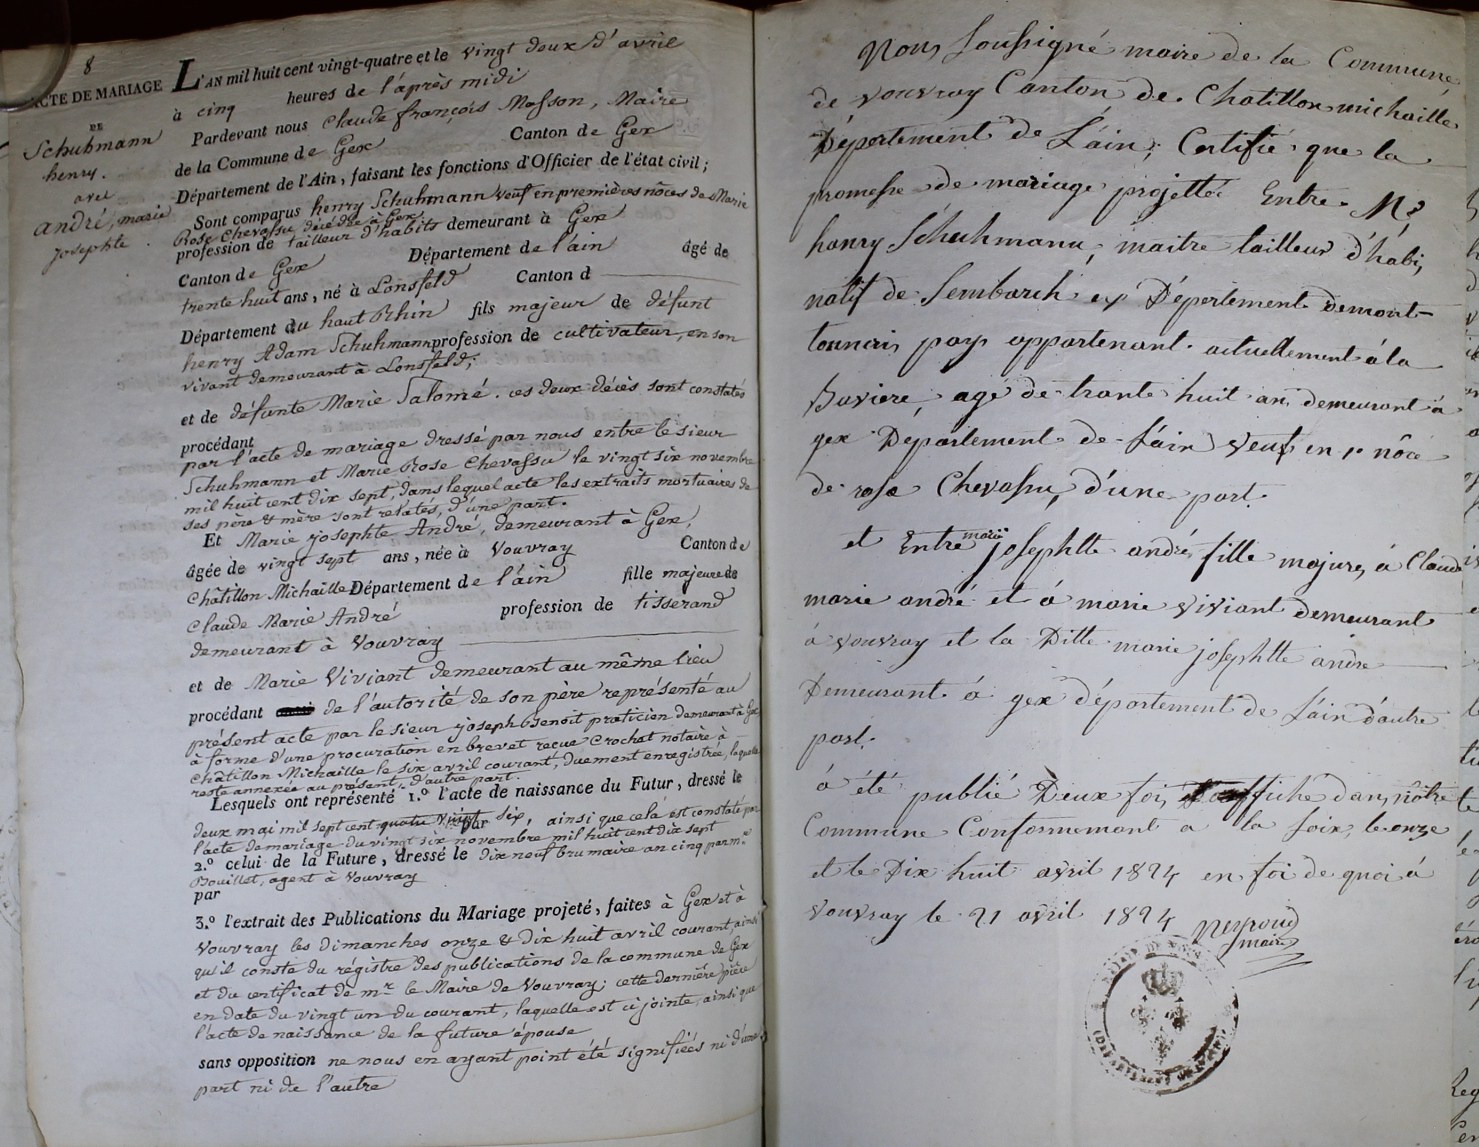 8
ACTE DE MARIAGE
DE
Schuhmann
henry.
avec
andré, marie
josephte.
L'AN mil huit cent vingt-quatre et le vingt deux d'avril
à cinq heures de l'après midi
Pardevant nous Claude françois Masson, Maire
de la Commune de Gex Canton de Gex
Département de l'Ain, faisant les fonctions d'Officier de l'état civil;
Sont comparus henry Schuhmann veuf en premières nôces de Marie
Rose Chevassu décédée à Gex
profession de tailleur d'habits demeurant à Gex
Canton de Gex Département de l'ain âgé de
trente huit ans, né à Lonsfeld Canton d
Département du haut Rhin fils majeur de défunt
henry Adam Schuhmann profession de cultivateur, en son
vivant demeurant à Lonsfeld;
et de défunte Marie Salomé. ces deux décès sont constatés
procédant
par l'acte de mariage dressé par nous entre le sieur
Schuhmann et Marie Rose Chevassu le vingt six novembre
mil huit cent dix sept, dans lequel acte les extraits mortuaires de
ses père & mère sont relatés, d'une part.
Et Marie josephte André, demeurant à Gex,
âgée de vingt sept ans, née à Vouvray Canton de
Châtillon Michaille Département de l'ain fille majeure de
Claude Marie André profession de tisserand
demeurant à Vouvray
et de Marie Viviant demeurant au même lieu
procédant de l'autorité de son père représenté au
présent acte par le sieur joseph Benoit praticien demeurant à Gex,
à forme d'une procuration en brevet reçue Crochat notaire à
Châtillon Michaille le six avril courant, duement enregistrée, laquelle
reste annexée au présent, d'autre part.
Lesquels ont représenté 1.º l'acte de naissance du Futur, dressé le
deux mai mil sept cent quatre vingt six, ainsi que celà est constaté par
par
l'acte de mariage du vingt six novembre mil huit cent dix sept
2.º celui de la Future, dressé le dix neuf brumaire an cinq par mr
Bouillet, agent à Vouvray
par
3.º l'extrait des Publications du Mariage projeté, faites à Gex et à
Vouvray les dimanches onze & dix huit avril courant, ainsi
qu'il conste du régistre des publications de la commune de Gex
et du certificat de mr le Maire de Vouvray; cette dernière pièce
en date du vingt un du courant, laquelle est ci jointe, ainsi que
l'acte de naissance de la future épouse
sans opposition ne nous en ayant point été signifiées ni d'une
part ni de l'autre
Nous Soussigné maire de la Commune
de vouvray Canton de Chatillon michaille
Département de L'áin, Certifié que la
promesse de mariage projetté Entre Mr
henry Schuhmann, maitre tailleur d'habi,
natif de Sembach ex Département demont-
tonnaire, pays appartenant actuellement á la
Baviere, agé de trante huit an, demeurant á
gex Département de L'áin veuf en 1e nôce
de rose Chevassu, d'une part.
et Entre marie josephtte andré, fille majure, á Claude
marie andré et á marie viviant demeurant
á vouvray et la Ditte marie josephtte andre
Demeurant á gex département de L'áin d'autre
part.
á été publié Deux foi, et affiché dans nôtre
Commune Conformemant a la Loix, le onze
et le Dix huit avril 1824 en foi de quoi á
vouvray le 21 avril 1824 Neyroud
maire